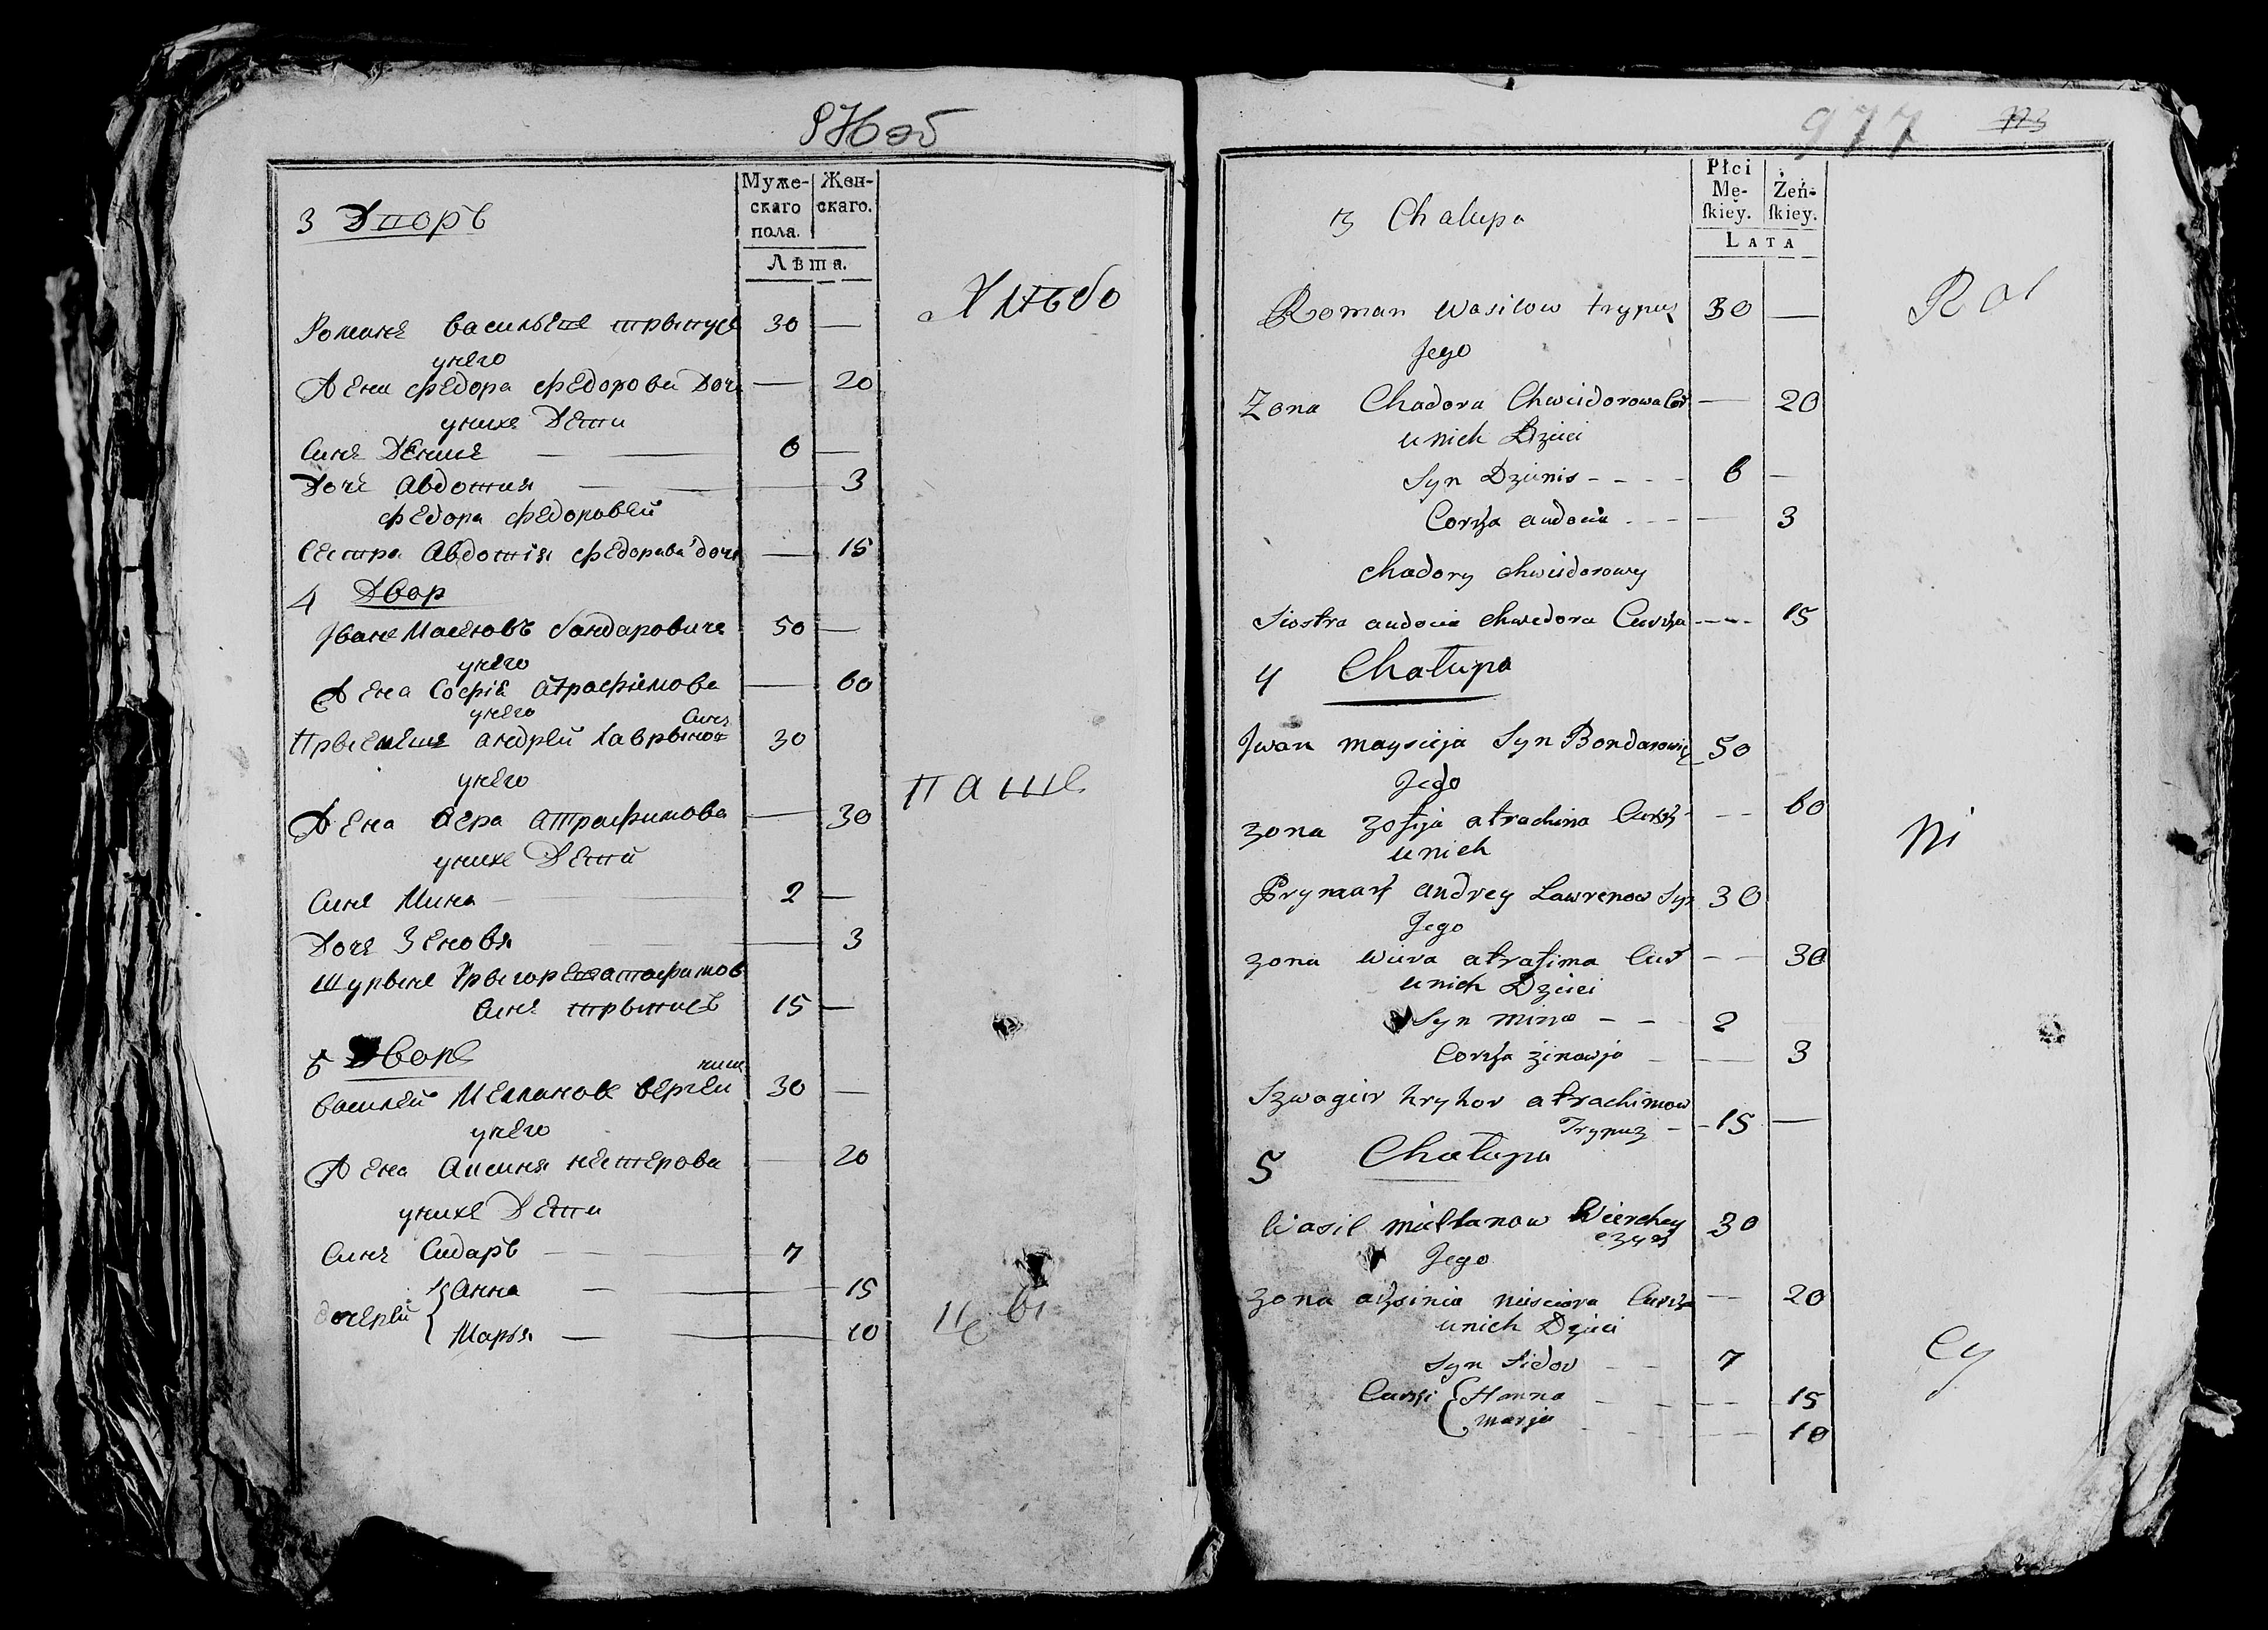 3 Дворъ
Муже-
скаго
пола.
Жен-
скаго.
Лѣта.
Романъ васильевъ трыпусъ 30 —
унего
Жена федора федорова Доч — 20
унихъ Дети
Синъ Денисъ — — 6 —
Дочъ Авдотия — — — 3
федора федоровой
Сестра Авдотия федорава доч — 15
4 Двор
Иванъ Масеювъ бондаровичъ 50 —
унего
Жена Софія атрафимова — 60
унего
Синъ
Прыемышъ андрей лаврынов 30
унего
Жена вера атрафимова — 30
унихъ Дети
Синъ Мина — 2 —
Дочъ Зеновя — — 3
Шурынъ Грыгор атрафимов
Синъ трыпусъ 15 —
5 Дворъ
василей Мелянов верхей 30 —
унего
Жена аксиня нестерова — 20
унихъ Дети
Синъ Сидаръ — — 7
дочерей { Анна — — 15
Марья — — 10
Хлѣбо
паше
977
3 Chalupa
Płci
Mę-
ſkiey.
Żeń-
ſkiey.
LATA
Roman Wasilow trypuz 30 —
Jego
Zona Chadora Chwiidorowa Cór — 20
u nich Dzieci
Syn Dzienis - - - - 6 —
Corka audocia - - - — 3
Chadory chwiidorowey
Siostra audocia chwedora Curka - - - - 15
4 Chałupa
Jwan maysieja Syn Bondarowicz 50
Jego
zona zofija atrachima Curk - - 60
u nich
Prymak andrey Lawrenow Syn 30
Jego
zona wiera atrafima Cur - - 30
u nich Dzieci
Syn mina - - 2
Corka zinowja - — 3
Szwagier hryhor atrachimow
Trypuz - 15 —
5 Chałupa
Wasil mieltanow Wierchey 30
Jego
zona axsinia niesciora Curka — 20
u nich Dzieci
Syn Sidor - - 7
Curki { Hanna - - - - 15
marja - - - - 10
Rol
ni
cy